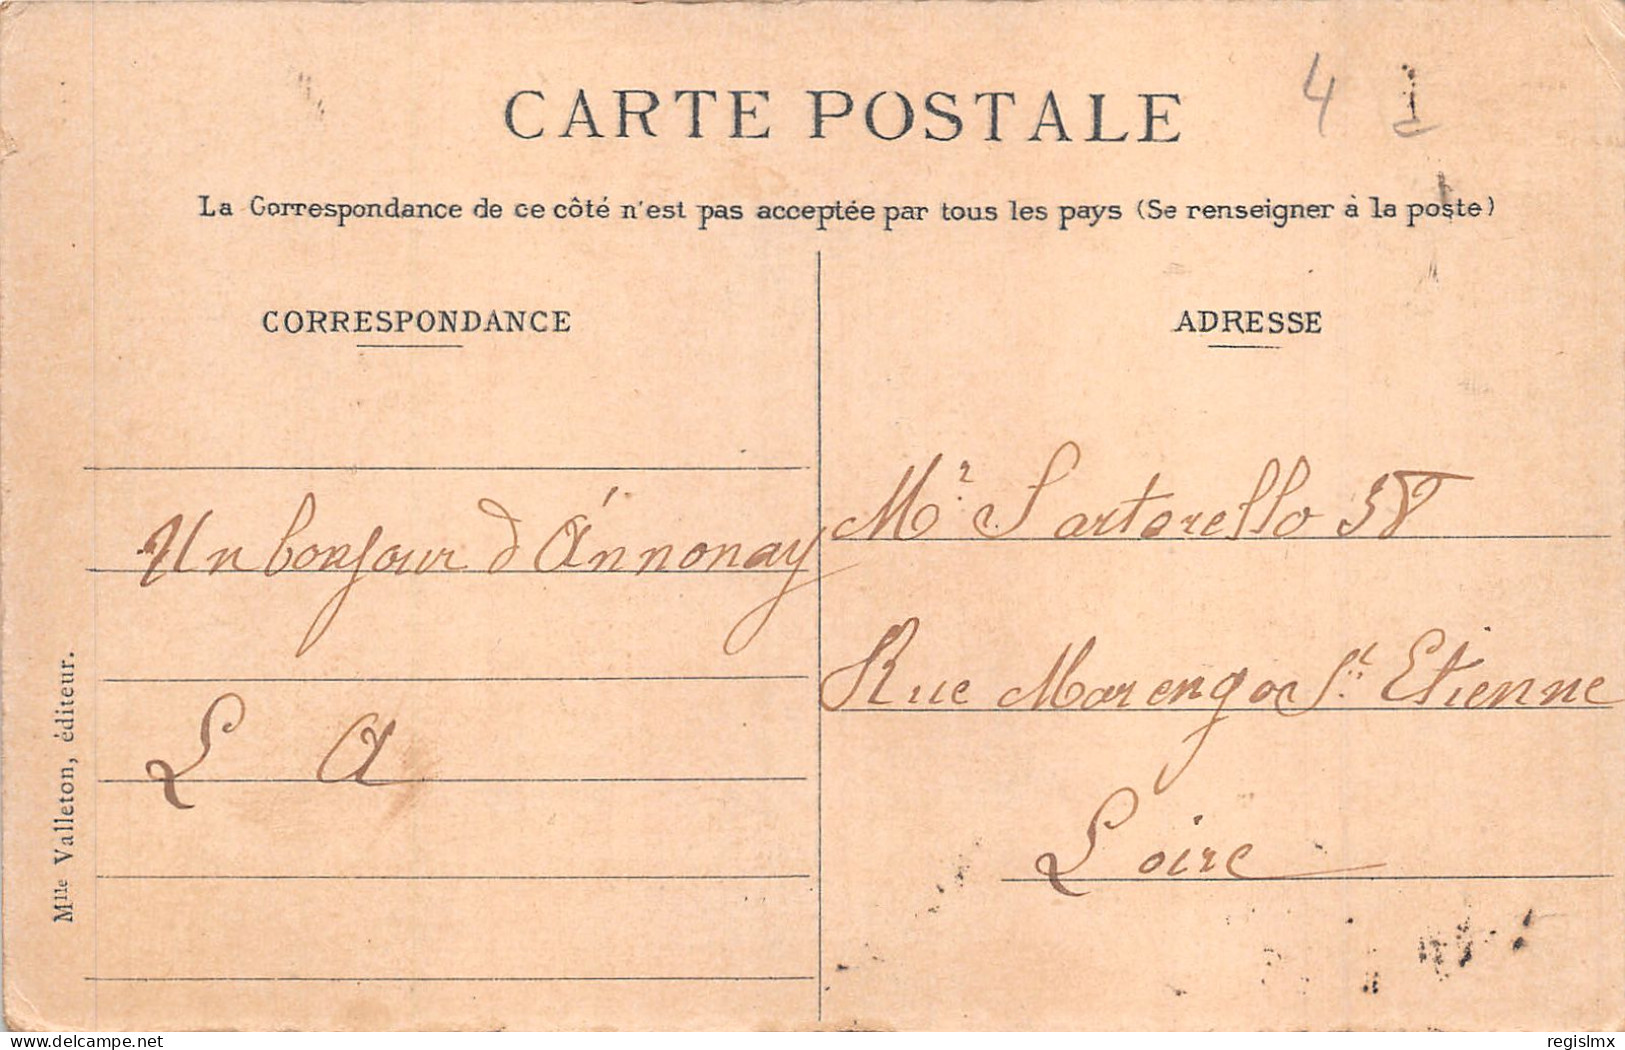 4 1
CARTE POSTALE
La Correspondance de ce côté n'est pas acceptée par tous les pays (Se renseigner à la poste)
CORRESPONDANCE
Un bonjour d'Annonay
L A
Mlle Valleton, éditeur.
ADRESSE
Mr Sartorello
Rue Marengo St Etienne
Loire
delcampe.net
regislmx